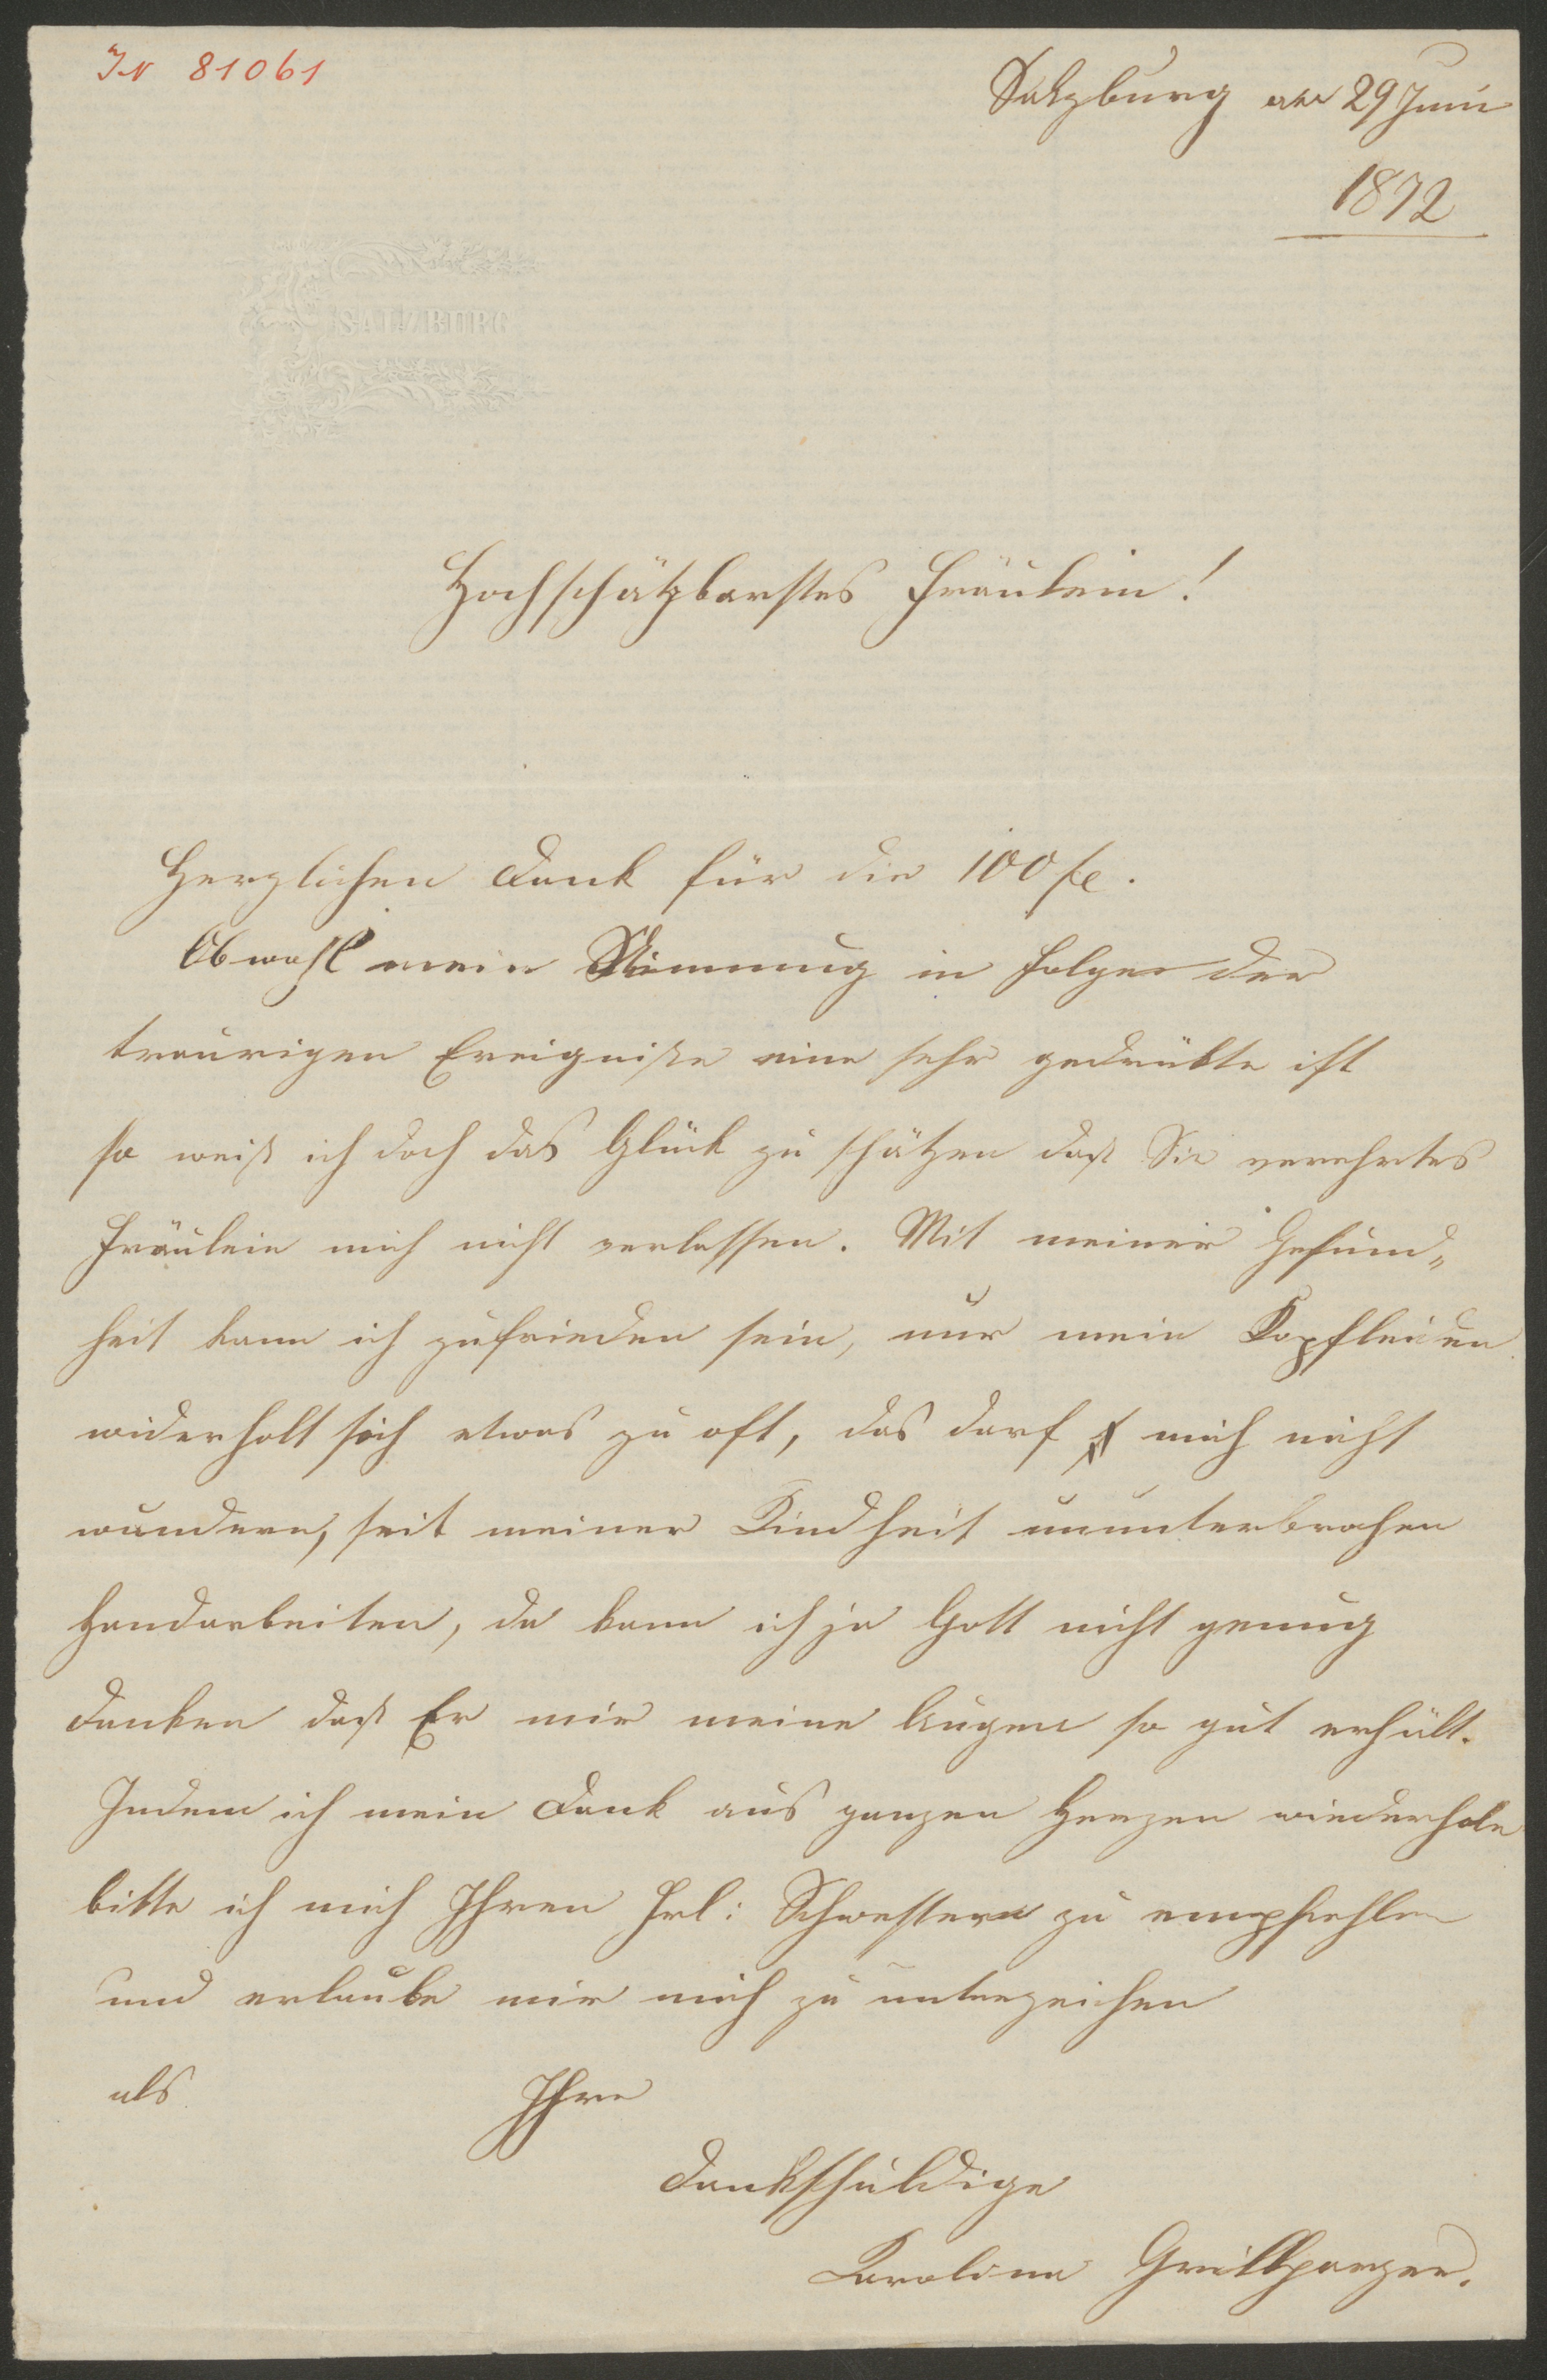 IN 81061
Salzburg am 29 Juni
1872
SALZBURG
Hochschätzbarstes Fräulein!
Herzlichen Dank für die 100 fl.
Obwohl mein Stimmung in Folge der
traurigen Ereigniße eine sehr gedrückte ist
so weiß ich doch das Glück zu schätzen daß Sie verehrtes
Fräulein mich nicht verlassen. Mit meiner Gesund„
heit kann ich zufrieden sein, nur mein Kopfleiden
widerholt sich etwas zu oft, das darf mich nicht
wundern, seit meiner Kindheit ununterbrochen
Handarbeiten, da kann ich ja Gott nicht genug
danken daß Er mir meine Augen so gut erhält.
Indem ich mein Dank aus ganzen Herzen wiederhole
bitte ich mich Ihren Frl: Schwestern zu empfehlen
und erlaube mir mich zu unterzeichen
als Ihre
dankschuldige
Karolina Grillparzer.